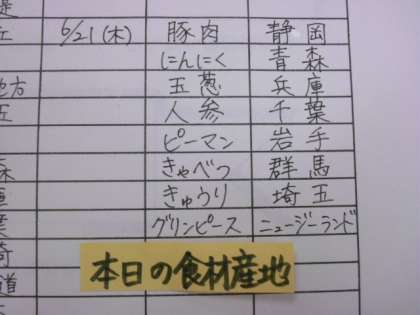 6/21(木) 豚肉 静岡
にんにく 青森
地方 玉葱 兵庫
人参 千葉
ピーマン 岩手
きゃべつ 群馬
きゅうり 埼玉
グリンピース ニュージーランド
本日の食材産地
道